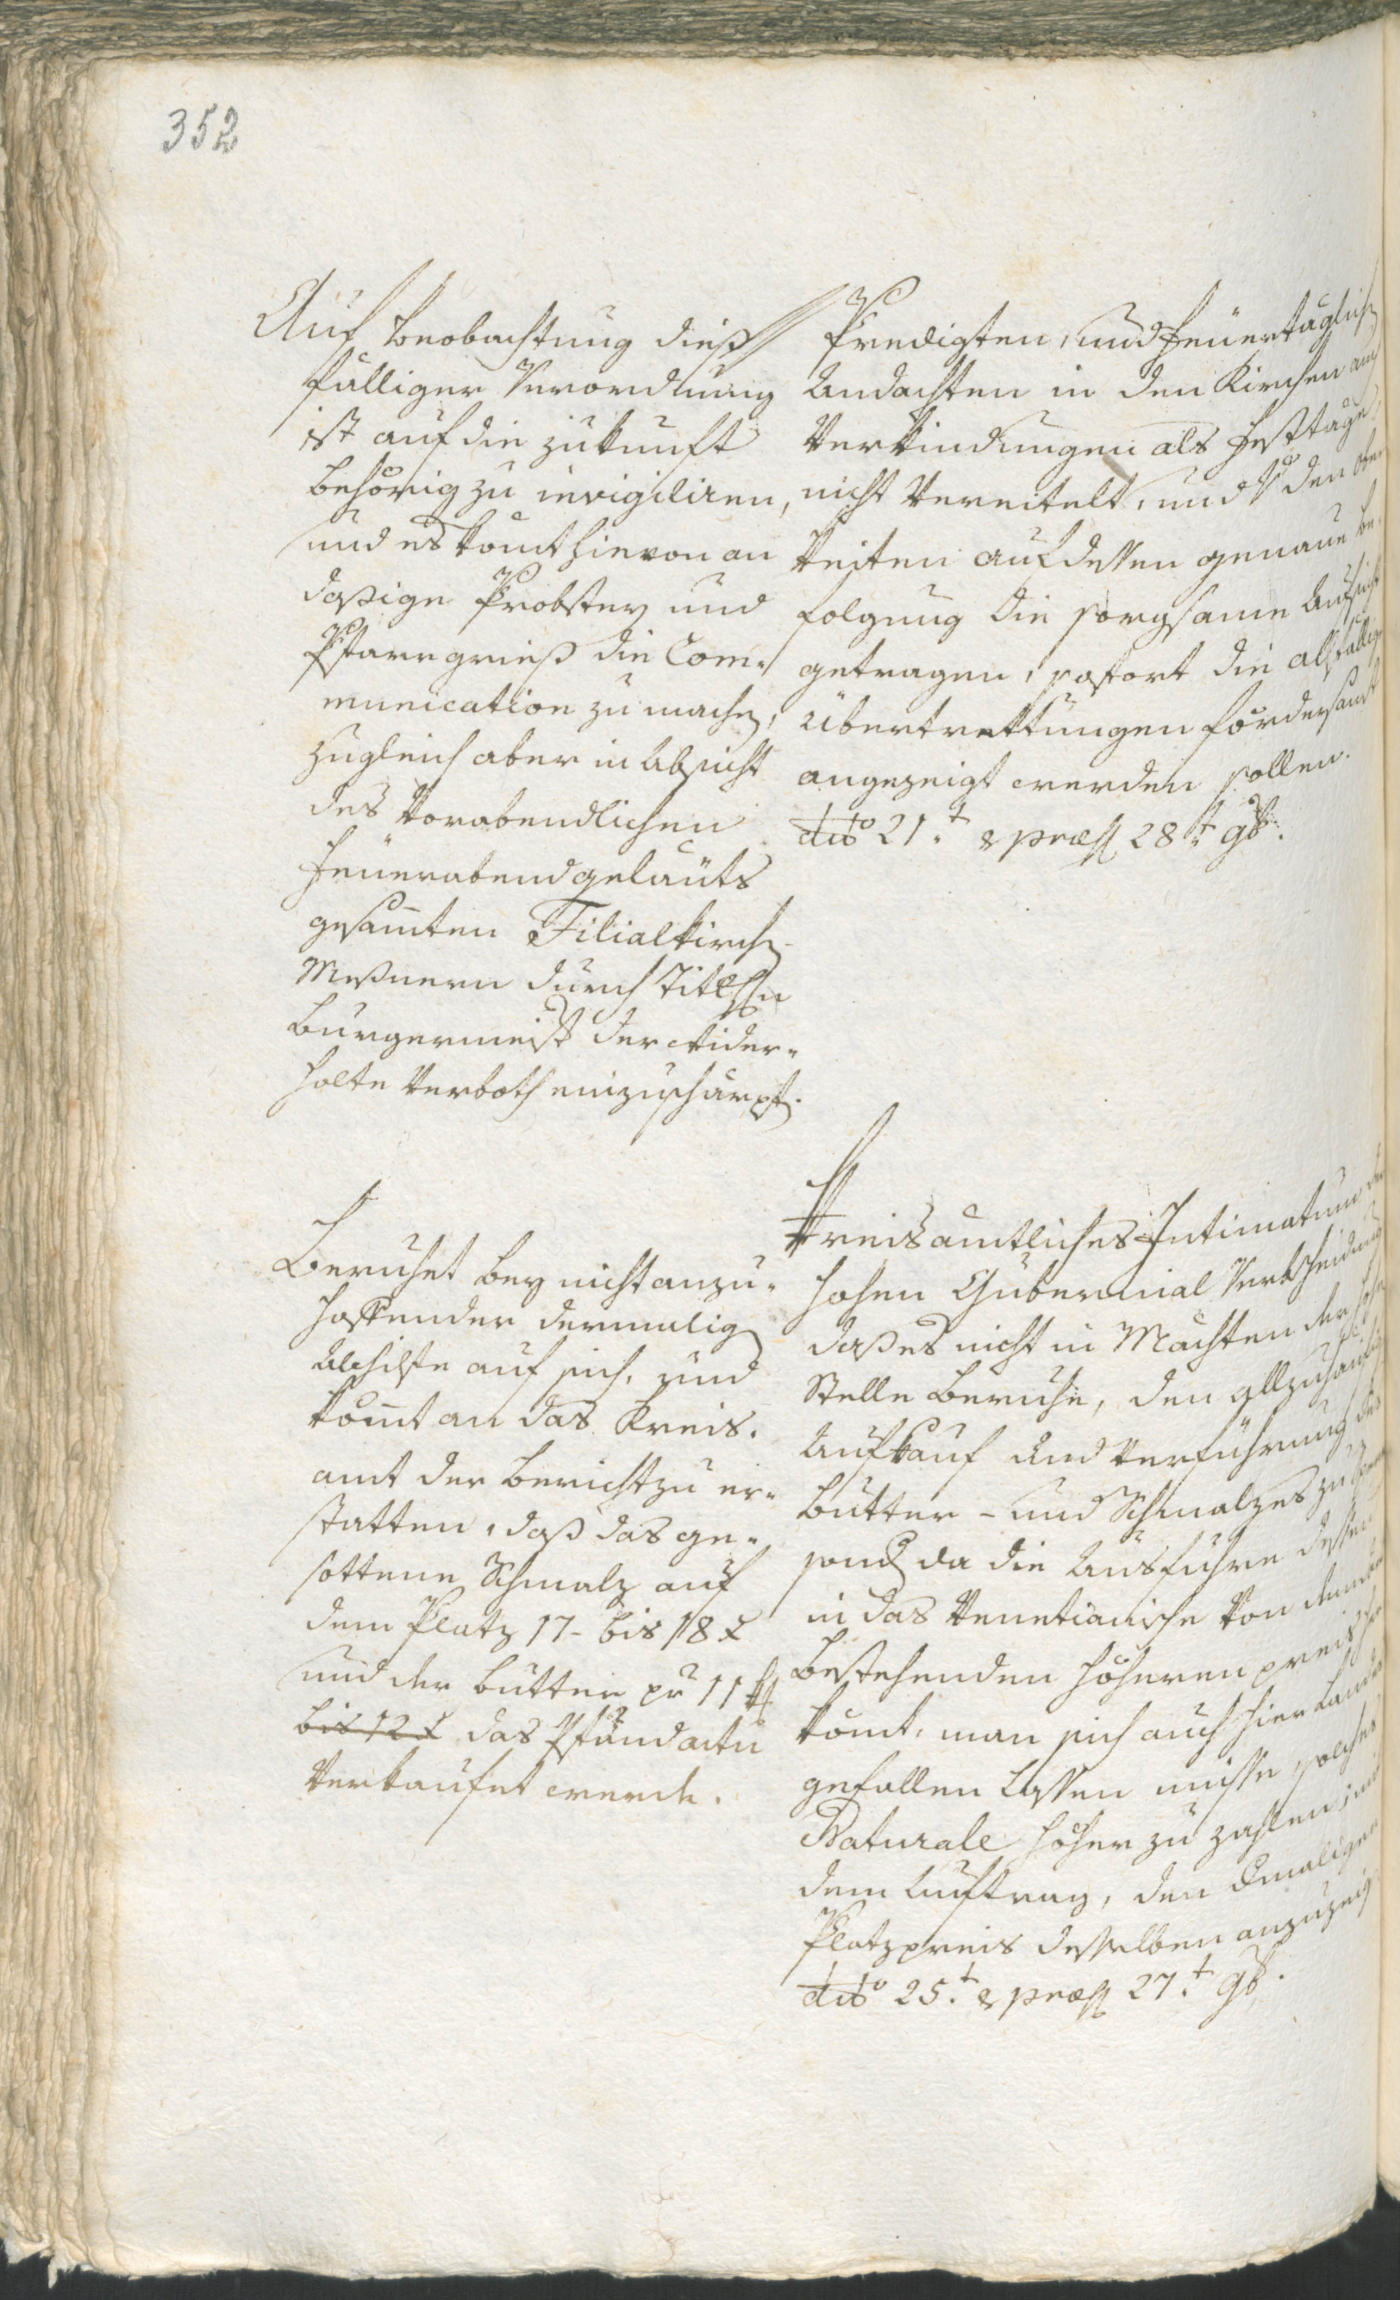 352
Auf Beobachtung dieß
fälliger Verordnung
ist auf die Zukunft
behörig zu invigiliren,
und es komt hievon an
daßige Probstey und
Pfarrgrieß die Com-
munication zu machen,
zugleich aber in Absicht
des Vorabendlichen
Feüerabendgeläuts
gesamten Filialkirchen
Meßnern durch Titl Hn
Burgermeist der wider-
holte Verboth einzuschärpfen.
Predigten, und Feüertäglichen
Andachten in den Kirchen
Verkindungen als Festtage
nicht Vereitelt, und Von den
keiten auf dessen genaue be-
folgung die sorgsame Aufsicht
getragen, sofort die allfällige
Übertrettungen fördersamst
angezeigt werden sollen.
dto 21.t & præs 28.t 9b.
Beruhet bey nicht anzu-
hoffender dermalig
Abhilfe auf sich, und
komt an das Kreis-
amt der Bericht zu er-
statten, daß das ge-
sottene Schmalz auf
dem Platz 17- bis 18 x
und der Butter pr 11
bis 12 x das Pfund actu
Verkaufet werde.
Kreisamtliches Intimatum
hohen Gubernial Verbscheidung
daß es nicht in Mächten der hohe
Stelle beruhe, den allzuhäufig
Aufkauf und Verführung des
Butter- und Schmalzes zu
sond da die Ausfuhre dessen
in das Venetianische Von
bestehenden höheren preis
komt, man sich auch hier Lands
gefallen lassen müsse, solches
Naturale höher zu zahlen, mit
dem Auftrag, den dmaligen
Platzpreis desselben anzuzeig
dto 25.t & præs 27.t 9b.